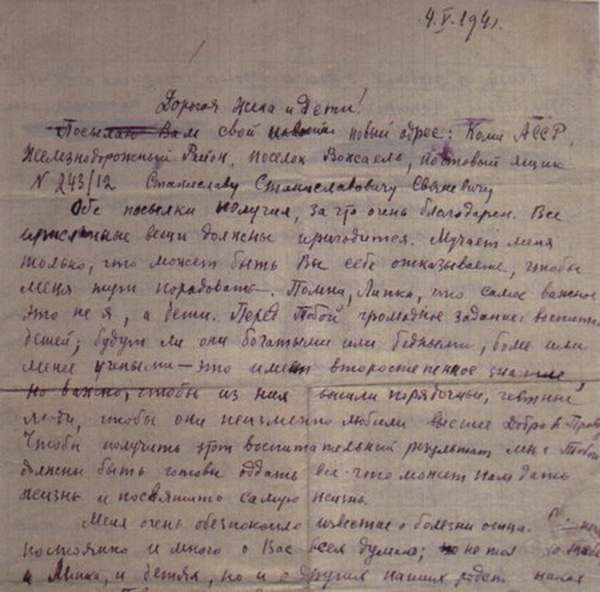 4.V.1941.
Дорогая жена и дети!
Посылаю Вам свой новый адрес: Коми АССР,
Железнодорожный Район, поселок Вожаель, почтовый ящик
N 243/12 Станиславу Станиславовичу Свяневичу
Обе посылки получил, за что очень благодарен. Все
присланные вещи должны пригодится. Мучает меня
только, что может быть Вы себе отказываете, чтобы
меня порадовать. Помни, Липка, что самое важное
это не я, а дети. Перед Тобой громадное задание: воспитать
детей; будут ли они богатыми или бедными, более или
менее учеными — это имеет второстепенное значение,
но важно, чтобы из них вышли порядочные, честные
люди, чтобы они неизменно любили высшее Добро и
Чтобы получить этот воспитательный результат мы с Тобой
должны быть готовы отдать все что может нам дать
жизнь и посвятить самую жизнь.
Меня очень обезпокоило известие о болезни отца.
постоянно и много о Вас всех думаю; не тол о Тебе
и детях, но и о других наших